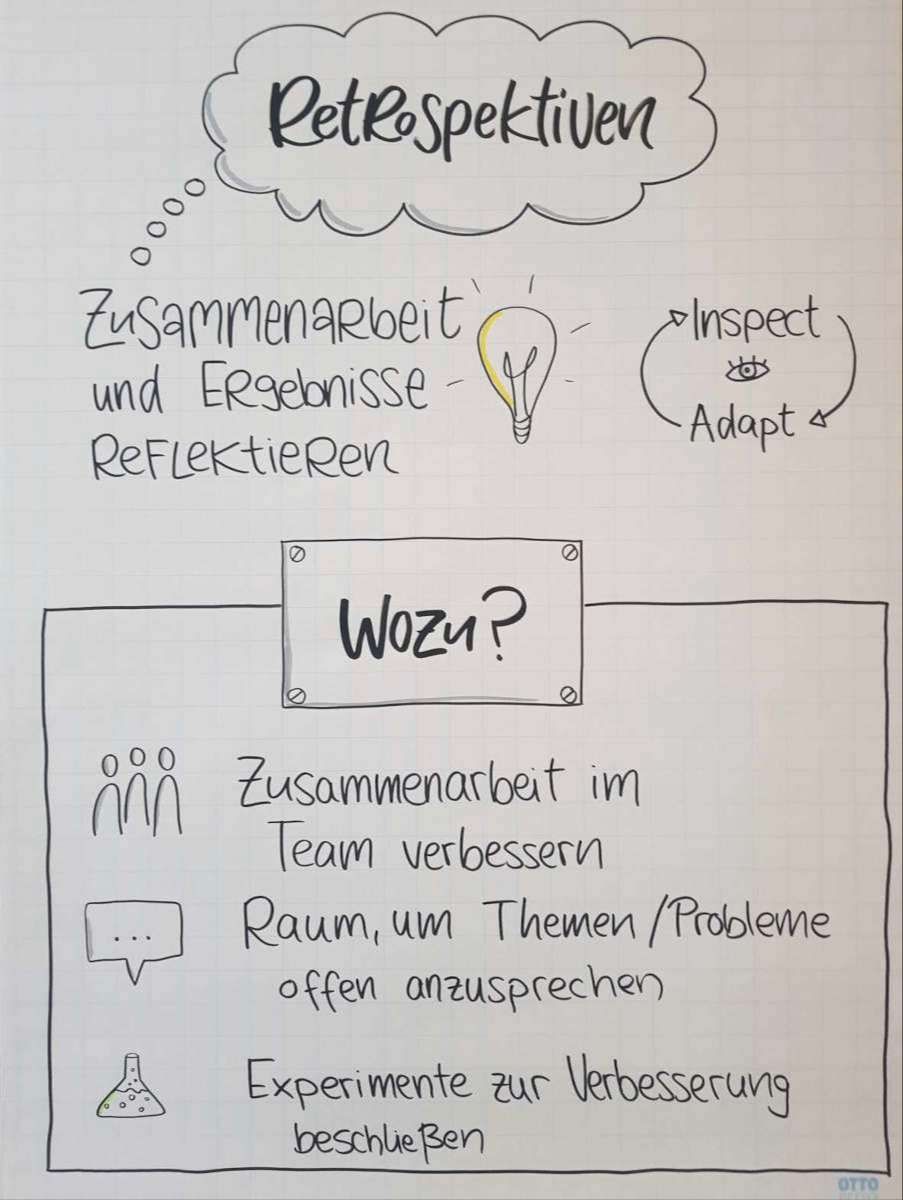 Retrospektiven
Zusammenarbeit
und Ergebnisse
reflektieren
Inspect
Adapt
Wozu?
Zusammenarbeit im
Team verbessern
Raum, um Themen/Probleme
offen anzusprechen
...
Experimente zur Verbesserung
beschließen
OTTO